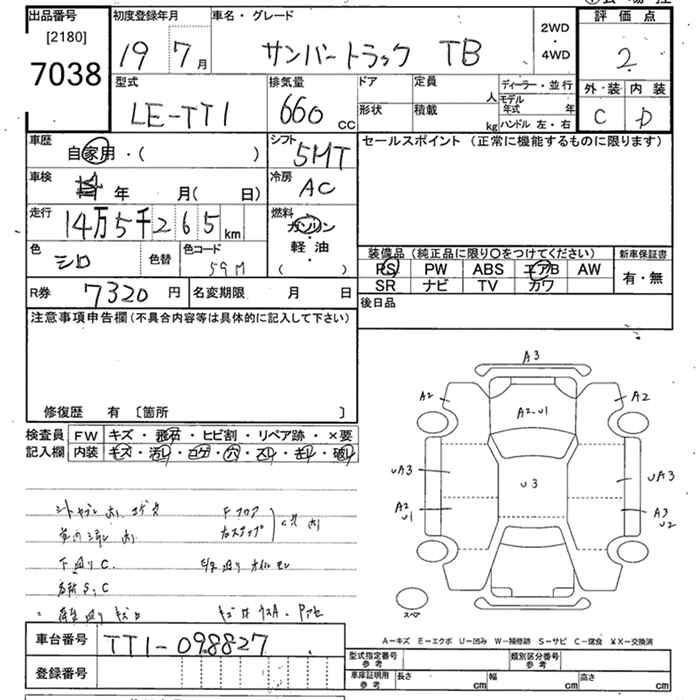 出品番号
[2180]
7038
初度登録年月
19 7月
車名・グレード
サンバートラック TB
2WD
4WD
評価点
2
外・装 内装
C D
型式
LE-TT1
排気量
660 CC
ドア
定員
人
形状
積載
kg
ディーラー・並行
モデル年式 年
ハンドル 左・右
車歴
自家用・( )
シフト
5MT
セールスポイント (正常に機能するものに限ります)
車検
年 月( 日)
冷房
AC
走行
14万5千265km
燃料
ガソリン
・
軽・油
・
( )
色
シロ
色替
色コード
59M
装備品 (純正品に限り○をつけてください)
新車保証書
PS PW ABS エアB AW
有・無
SR ナビ TV カワ
R券 7320円
名変期限 月 日
後日品
注意事項申告欄(不具合内容等は具体的に記入して下さい)
修復歴 有 〔箇所 〕
検査員
記入欄
FW キズ・飛石・ヒビ割・リペア跡・×要
内装 キズ・汚レ・コゲ・穴・スレ・キレ・破レ
A3
A2 A2
A2・U1
UA3 U3 UA3
A2
U1
A3
U2
スペア
下廻りC
S,C
A－キズ E－エクボ U－凹み W－補修跡 S－サビ C－腐食 XX－交換済
車台番号 TT1-098827
登録番号
型式指定番号
参考
類別区分番号
参考
車庫証明用
参考
長さ cm 幅 cm 高さ cm